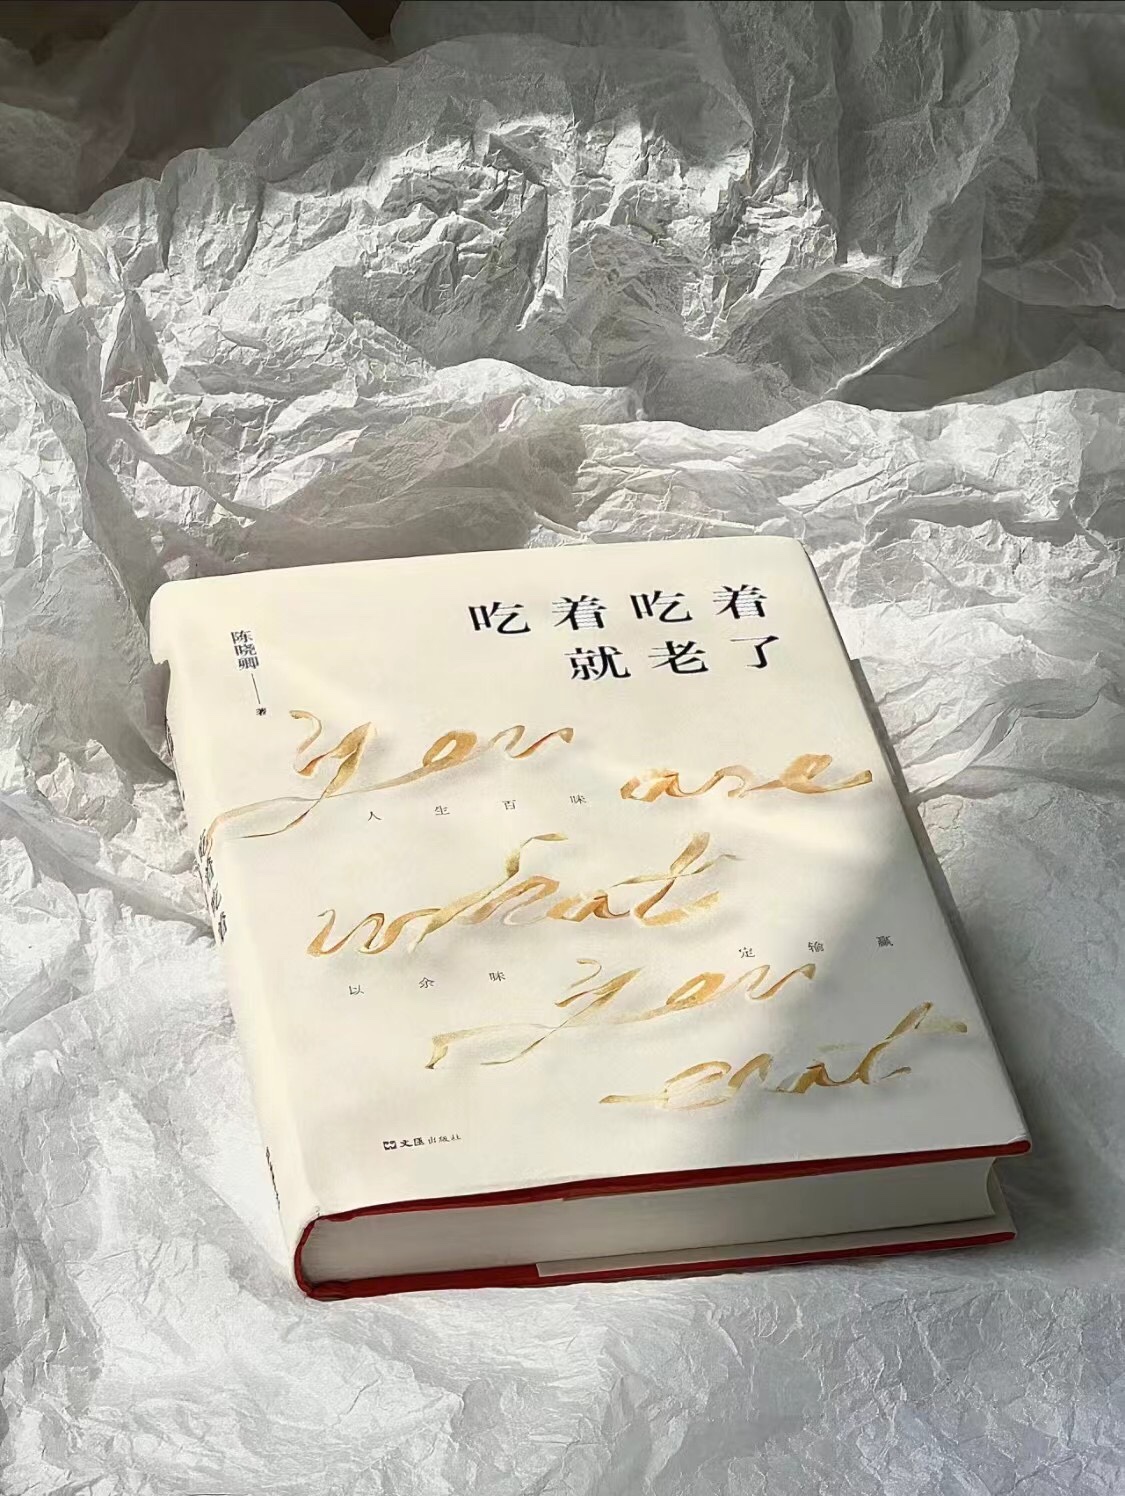 吃着吃着
就老了
陈晓卿——著
you are
人生百味
what
以余味 定输赢
you
eat
文匯出版社